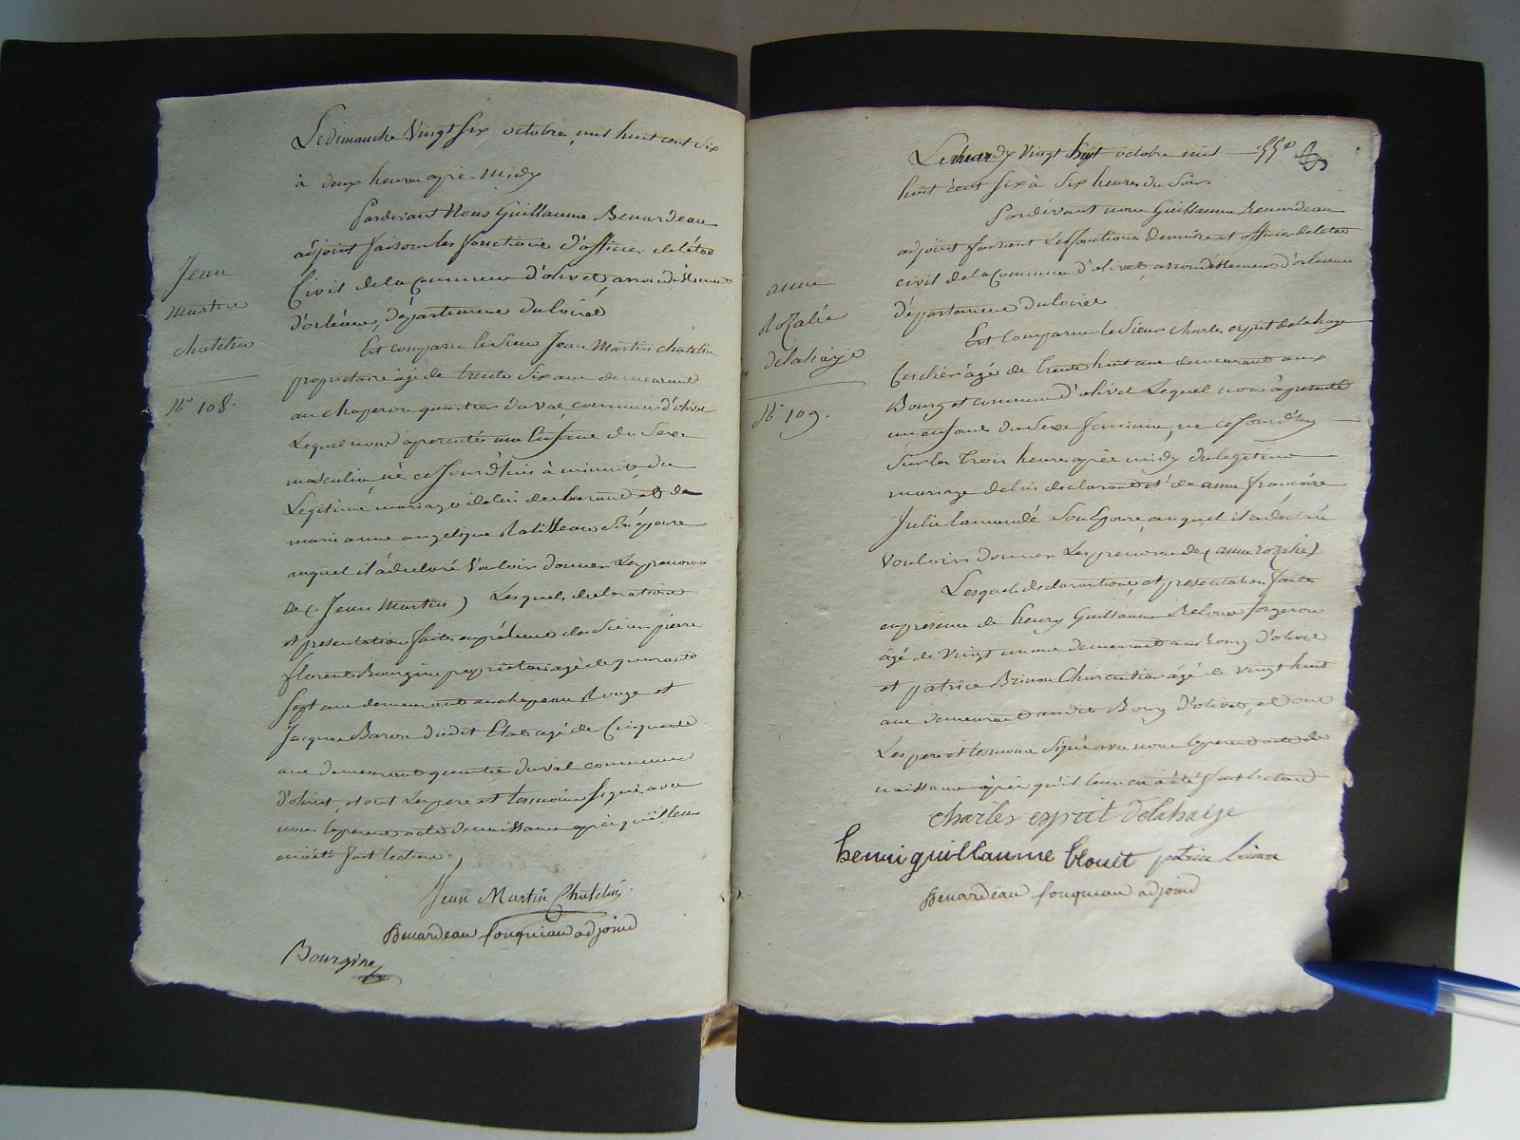 Le dimanche vingt six octobre mil huit cent six
à deux heures après midy
Pardevant Nous Guillaume Benardeau
adjoint faisant les fonctions d'officier de létat
Civil de la Commune d'olivet, arrondissement
d'orléans, département du loiret
Jean
martin
chatelin
N° 108.
Est comparu le Sieur Jean Martin chatelin
propriétaire âgé de trente Six ans demeurant
au chaperon quartier du val commune d'olivet
Lequel nous a présenté un Enfant du Sexe
masculin né ce Jourd'huis à minuit du
Légitime mariage de lui déclarant et de
marie anne angelique Ratisseau Son Epouse
auquel il a déclaré Vouloir donner Les prenoms
de (Jean Martin) Lesquels déclaration
et présentation faites en présence des Sieurs pierre
florent Bourgine propriétaire âgé de quarante
Sept ans demeurant au chapeau Rouge et
Jacques Baron dudit Etat âgé de Cinquante
ans demeurant quartier du val commune
d'olivet, et ont Les pere et temoins Signé avec
nous le present acte de naissance après qu'il leur
en a été fait lecture,
Jean Martin Chatelin
Benardeau fouqueau adjoint
Bourgine
Le mardy vingt huit octobre mil 55e
huit cent six à Six heures du Soir
Pardevant nous Guillaume Benardeau
adjoint faisant les fonctions de maire et officier de létat
civil de la Commune d'olivet, arrondissement d'orleans
département du loiret
anne
Rozalie
delahaye
N° 109.
Est Comparu le Sieur charles esprit delahaye
âgé de trente huit ans demeurant aux
Bourg et commune d'olivet Lequel nous a présenté
un enfant du Sexe feminin, né ce Jourd'huy
Sur les trois heures après midy du légitime
mariage de lui déclarant et de anne françoise
Julie Son Epouse, auquel il a déclaré
vouloir donner Les prenoms de (anne rozalie)
Lesquels déclarations et présentation faites
en presence de henry Guillaume Blouet forgeron
âgé de Vingt un ans demeurant au bourg d'olivet
et patrice Charcutier âgé de vingt huit
ans demeurant audit Bourg d'olivet, et ont
Les pere et temoins Signé avec nous le present acte de
naissance après qu'il leur en a été fait lecture
charles esprit delahaye
henri guillaume blouet patrice
Benardeau fouqueau adjoint